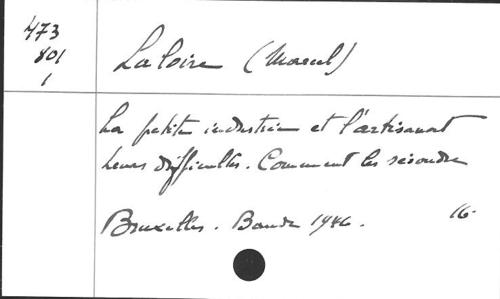 473
801
1
Laloire (Marcel)
La petite industrie et l'artisanat
Leurs difficultés. Comment les résoudre
Bruxelles. Baude 1946. 16.